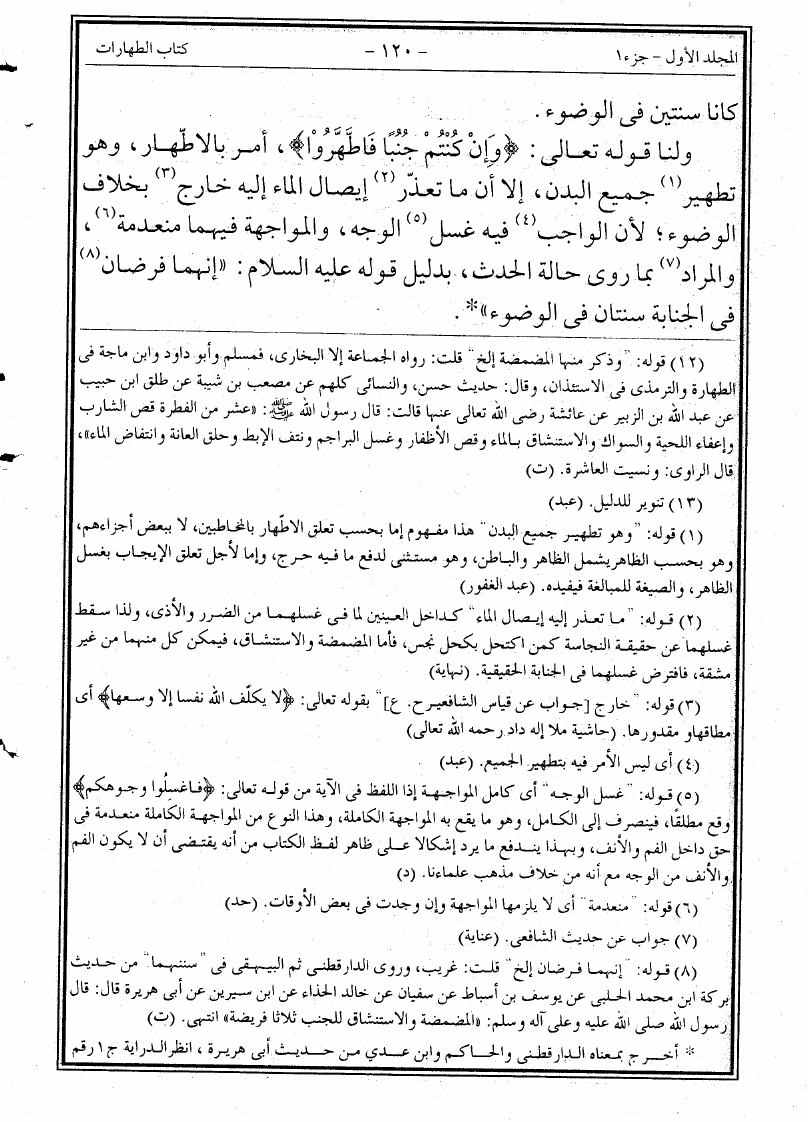 المجلد الأول – جزء ١ - ١٢٠ - كتاب الطهارات
كانا سنتين فى الوضوء.
ولنا قوله تعالى: ﴿وَإِنْ كُنْتُمْ جُنُبًا فَاطَّهَّرُوْا﴾، أمر بالاطّهار، وهو
تطهير(١) جميع البدن، إلا أن ما تعذّر(٢) إيصال الماء إليه خارج(٣) بخلاف
الوضوء؛ لأن الواجب(٤) فيه غسل(٥) الوجه، والمواجهة فيهما منعدمة(٦)،
والمراد(٧) بما روى حالة الحدث، بدليل قوله عليه السلام: «إنهما فرضان(٨)
فى الجنابة سنتان فى الوضوء»*.
(١٢) قوله: "وذكر منها المضمضة إلخ" قلت: رواه الجماعة إلا البخارى، فمسلم وأبو داود وابن ماجة فى
الطهارة والترمذى فى الاستئذان، وقال: حديث حسن، والنسائى كلهم عن مصعب بن شيبة عن طلق ابن حبيب
عن عبد الله بن الزبير عن عائشة رضى الله تعالى عنها قالت: قال رسول الله ﷺ: «عشر من الفطرة قص الشارب
وإعفاء اللحية والسواك والاستنشاق بالماء وقص الأظفار وغسل البراجم ونتف الإبط وحلق العانة وانتفاض الماء»،
قال الراوى: ونسيت العاشرة. (ت)
(١٣) تنوير للدليل. (عبد)
(١) قوله: "وهو تطهير جميع البدن" هذا مفهوم إما بحسب تعلق الاطّهار بالمخاطبين، لا ببعض أجزاءهم،
وهو بحسب الظاهر يشمل الظاهر والباطن، وهو مستثنى لدفع ما فيه حرج، وإما لأجل تعلق الإيجاب بغسل
الظاهر، والصيغة للمبالغة فيفيده. (عبد الغفور)
(٢) قوله: "ما تعذر إليه إيصال الماء" كداخل العينين لما فى غسلهما من الضرر والأذى، ولذا سقط
غسلهما عن حقيقة النجاسة كمن اكتحل بكحل نجس، فأما المضمضة والاستنشاق، فيمكن كل منهما من غير
مشقة، فافترض غسلهما فى الجنابة الحقيقية. (نهاية)
(٣) قوله: "خارج [جواب عن قياس الشافعيرح. ع]" بقوله تعالى: ﴿لا يكلّف الله نفسا إلا وسعها﴾ أى
مطاقهاو مقدورها. (حاشية ملا إله داد رحمه الله تعالى)
(٤) أى ليس الأمر فيه بتطهير الجميع. (عبد)
(٥) قوله: "غسل الوجه" أى كامل المواجهة إذا اللفظ فى الآية من قوله تعالى: ﴿فاغسلُوا وجوهكم﴾
وقع مطلقًا، فينصرف إلى الكامل، وهو ما يقع به المواجهة الكاملة، وهذا النوع من المواجهة الكاملة منعدمة فى
حق داخل الفم والأنف، وبهذا يندفع ما يرد إشكالا على ظاهر لفظ الكتاب من أنه يقتضى أن لا يكون الفم
والأنف من الوجه مع أنه من خلاف مذهب علماءنا. (د)
(٦) قوله: "منعدمة" أى لا يلزمها المواجهة وإن وجدت فى بعض الأوقات. (حد)
(٧) جواب عن حديث الشافعى. (عناية)
(٨) قوله: "إنهما فرضان إلخ" قلت: غريب، وروى الدارقطنى ثم البيهقى فى "سننهما" من حديث
بركة ابن محمد الحلبى عن يوسف بن أسباط عن سفيان عن خالد الحذاء عن ابن سيرين عن أبى هريرة قال: قال
رسول الله صلى الله عليه وعلى آله وسلم: «المضمضة والاستنشاق للجنب ثلاثا فريضة» انتهى. (ت)
* أخرج بمعناه الدارقطنى والحاكم وابن عدي من حديث أبى هريرة، انظر الدراية ج١ رقم